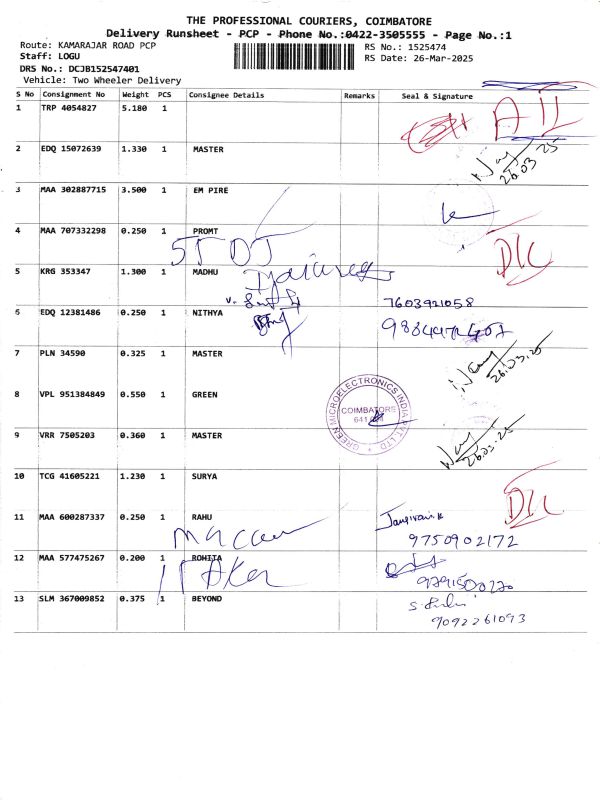 THE PROFESSIONAL COURIERS, COIMBATORE
Delivery Runsheet - PCP - Phone No.:0422-3505555 - Page No.:1
Route: KAMARAJAR ROAD PCP RS No.: 1525474
Staff: LOGU RS Date: 26-Mar-2025
DRS No.: DCJB152547401
Vehicle: Two Wheeler Delivery
S No Consignment No Weight PCS Consignee Details Remarks Seal & Signature
1 TRP 4054827 5.180 1
2 EDQ 15072639 1.330 1 MASTER
26.03.25
3 MAA 302887715 3.500 1 EM PIRE
4 MAA 707332298 0.250 1 PROMT
5 KRG 353347 1.300 1 MADHU
7603921058
6 EDQ 12381486 0.250 1 NITHYA
7 PLN 34590 0.325 1 MASTER
26.03.25
8 VPL 951384849 0.550 1 GREEN
GREEN MICROELECTRONICS INDIA PVT. LTD
COIMBATORE
9 VRR 7505203 0.360 1 MASTER
26.03.25
10 TCG 41605221 1.230 1 SURYA
11 MAA 600287337 0.250 1 RAHU
9750902172
12 MAA 577475267 0.200 1 ROHITA
13 SLM 367009852 0.375 1 BEYOND
9092261093